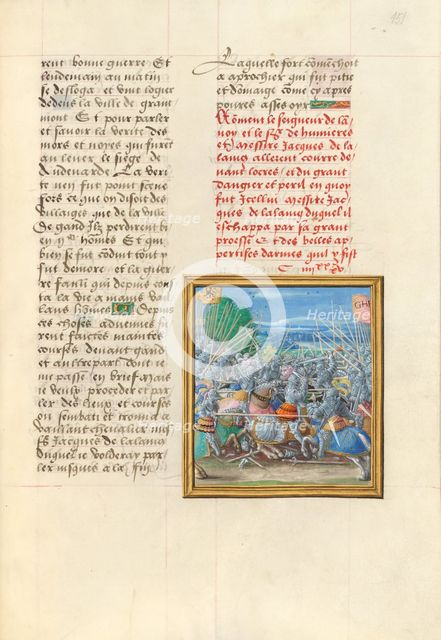 151
rent bonne guerre Et
lendemain au matin
se desloga et vint logier
dedens la ville de grant
mont Et pour parler
et savoir la verite des
mors et noyes qui furent
au lever le siege de
Audenarde La veri
te nen fut point sceue
fors ce que on disoit des
villaiges que de la ville
De gand Ilz perdirent bi
en hommes Et qui
bien se fut conduit tout y
fut demore et la guer
re failli qui depuis cous
ta la vie a mains vail
lans hommes Depuis
ces choses advenues fu
rent faictes maintes
courses devant gand
et aultre part dont ie
me passe en brief Mais
ie veuls proceder et par
ler des lieux et courses
ou sembati et trouva ce
vaillant chevalier mes
sire Jacques de lalaing
Duquel ie voldray par
ler jusques a la fin
Laquelle fort commenchoit
a aprochier qui fut pitie
et domaige come cy apres
pourres asses oyr
Coment le seigneur de lan
noy et le sr de humieres
et Messire Jacques de la
laing allerent courre de
vant locres et du grant
dangier et peril en quoy
fut Icellui Messire Jac
ques de lalaing duquel il
eschappa par sa grant
proesse Et des belles ap
pertises darmes quil y fist
GHE
Heritage
Heritage
Heritage
Heritage